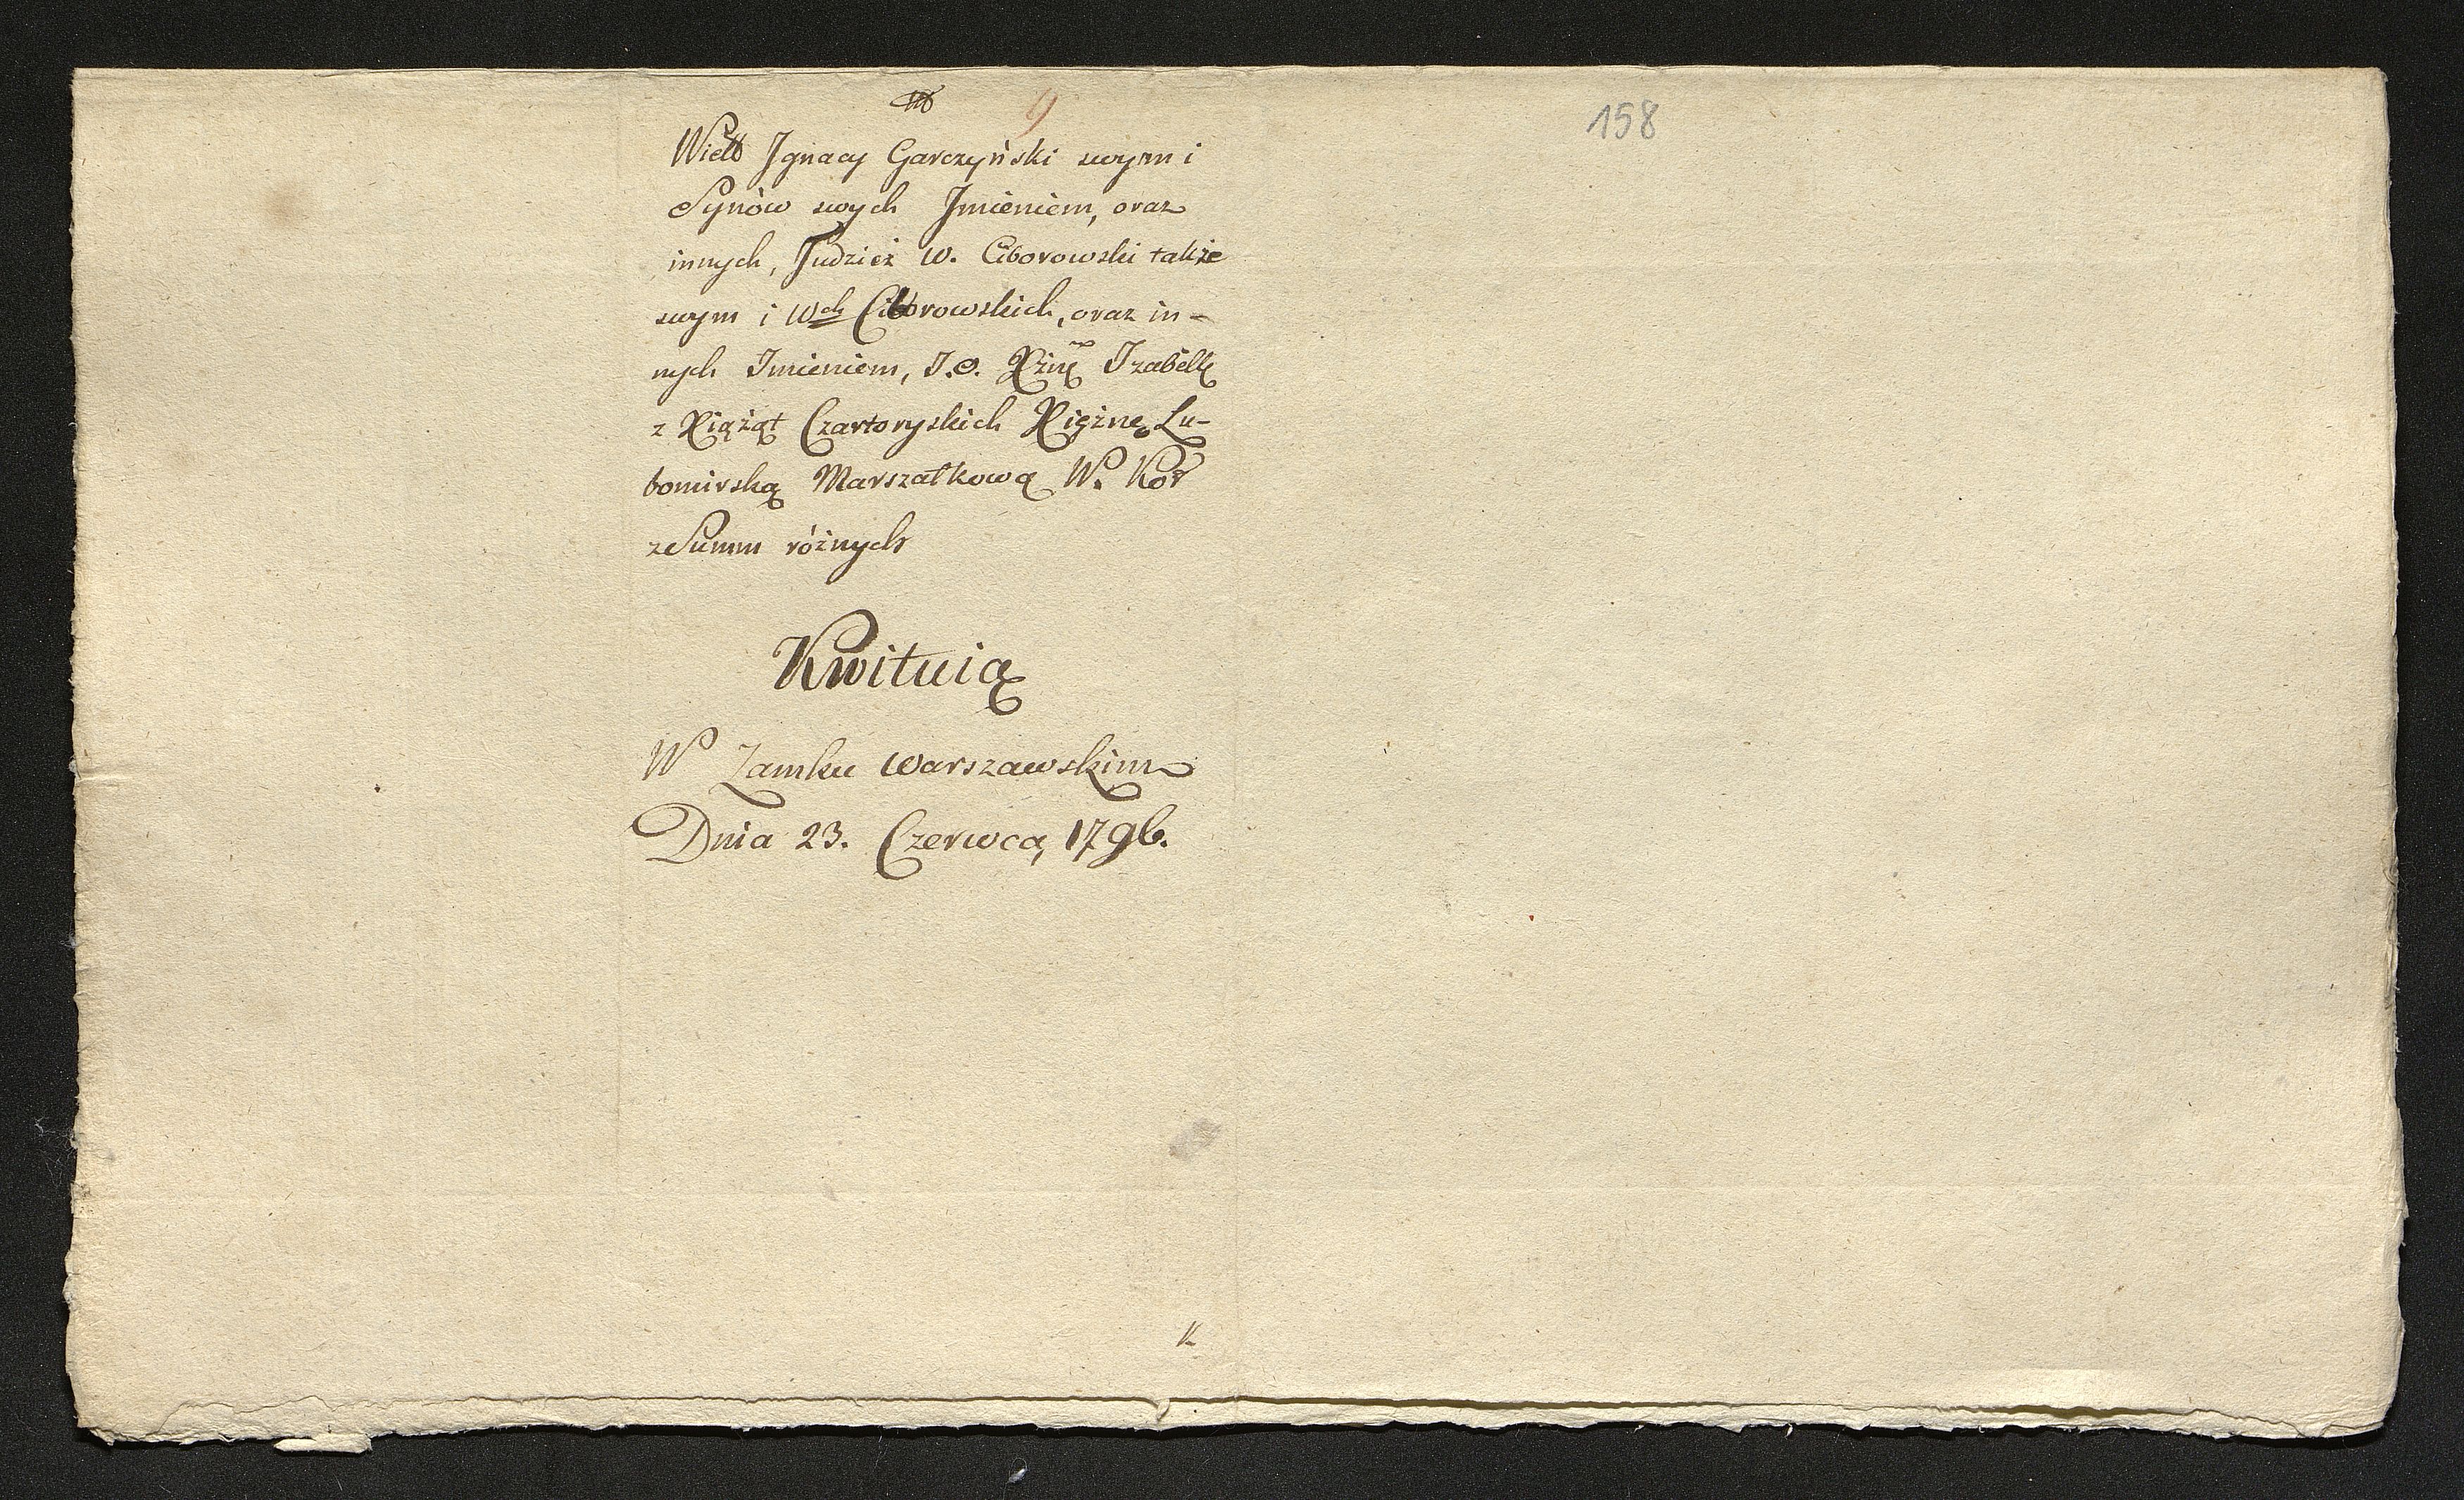 9
158
Wielb Jgnacy Garczyński swym i
Synów swych Jmieniem, oraz
innych, Judzież W. Ciborowski także
swym i Wch Ciborowskich, oraz in-
nych Jmieniem, J.O. Xżnę Jzabellę
z Xiążąt Czartoryskich Xiężnę Lu-
bomirską Marszałkową W. Kor
z Summ różnych
Kwituią
W Zamku Warszawskim
Dnia 23. Czerwca, 1796.
K